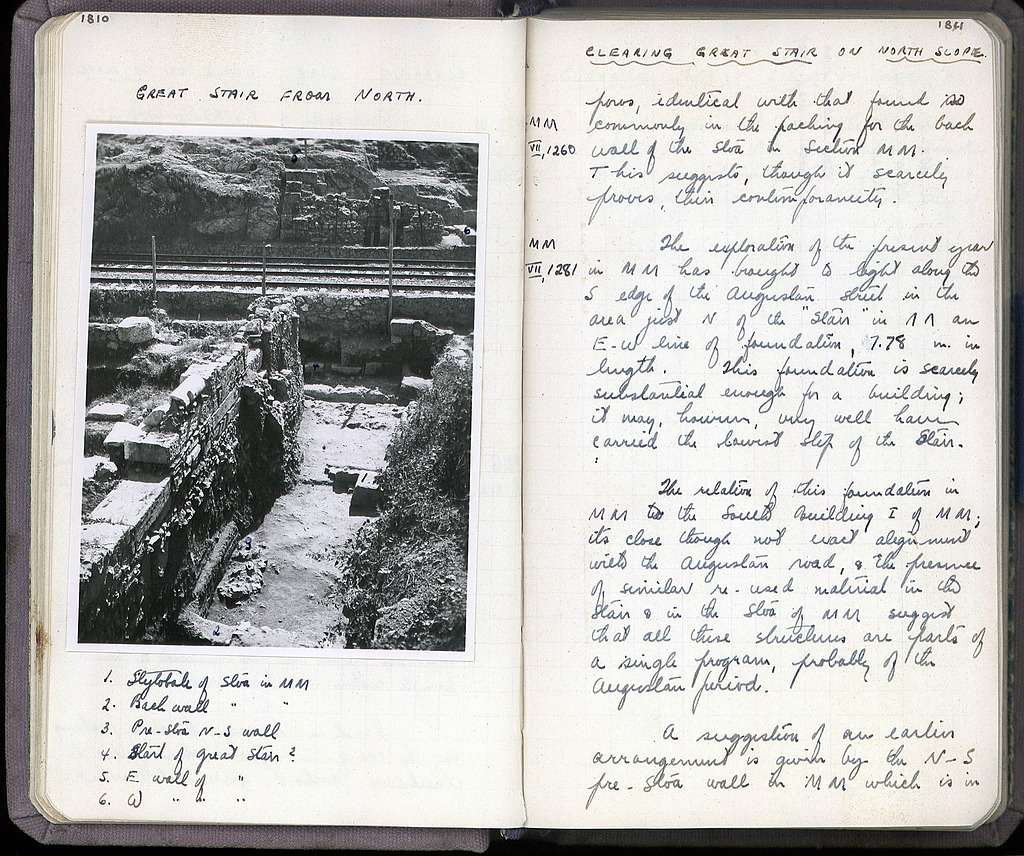 1810
GREAT STAIR FROM NORTH.
1. Stylobate of Stoa in MM
2. Back wall " "
3. Pre-Stoa N-S wall
4. Start of great Stair?
5. E wall of "
6. W " " "
CLEARING GREAT STAIR ON NORTH SLOPE.
poros, identical with that found so
MM
VII, 1260
commonly in the packing for the back
wall of the Stoa in Section MM.
This suggests, though it scarcely
proves, their contemporaneity.
MM
VII, 1281
The exploration of the present year
in MM has brought to light along the
S edge of the Augustan Street in the
area just N of the "Stair" in ΛΛ an
E-W line of foundation, 7.78 m. in
length. This foundation is scarcely
substantial enough for a building;
it may, however, very well have
carried the lowest step of the Stair.
The relation of this foundation in
MM to the South Building I of MM;
its close though not exact alignment
with the Augustan road, & the presence
of similar re-used material in the
Stair & in the Stoa of MM suggest
that all these structures are parts of
a single program, probably of the
Augustan period.
A suggestion of an earlier
arrangement is given by the N-S
pre-Stoa wall in MM which is in